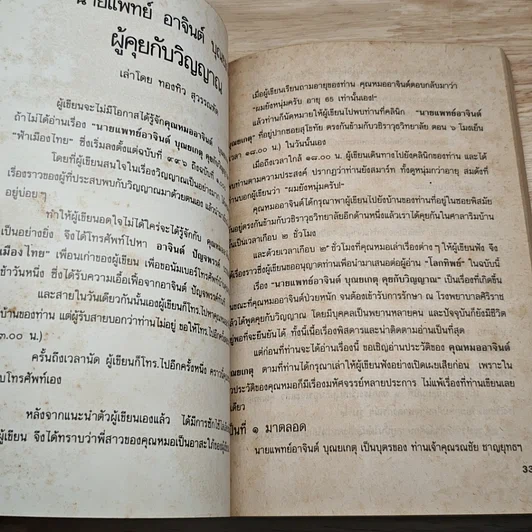 นายแพทย์ อาจินต์ บุณยเกตุ
ผู้คุยกับวิญญาณ
เล่าโดย ทองทิว สุวรรณทัต
ผู้เขียนจะไม่มีโอกาสได้รู้จักคุณหมออาจินต์
ถ้าไม่ได้อ่านเรื่อง "นายแพทย์อาจินต์ บุณยเกตุ คุยกับวิญญาณ"
"ฟ้าเมืองไทย" ซึ่งเริ่มลงตั้งแต่ฉบับที่ ๙๙๖
โดยที่ผู้เขียนสนใจในเรื่องวิญญาณเป็นอย่างมาก
เรื่องราวของผู้ที่ประสบพบกับวิญญาณมาด้วยตนเอง
อยู่บ่อยๆ
ทำให้ผู้เขียนอดใจไม่ได้ใคร่จะได้รู้จักกับ
เป็นอย่างยิ่ง จึงได้โทรศัพท์ไปหา อาจินต์ ปัญจพรรค์
เมืองไทย" เพื่อนเก่าของผู้เขียน เพื่อขอนัมเบอร์โทรศัพท์
เช้าวันหนึ่ง ซึ่งได้รับความเอื้อเฟื้อจากอาจินต์ ปัญจพรรค์
และสายในวันเดียวกันนั้นเองผู้เขียนก็โทร.ไปหา
บ้านของท่าน แต่ผู้รับสายบอกว่าท่านไม่อยู่ ขอให้โทร.ไปอีก
๓.๐๐ น.)
ครั้นถึงเวลานัด ผู้เขียนก็โทร.ไปอีกครั้งหนึ่ง
โทรศัพท์เอง
หลังจากแนะนำตัวผู้เขียนเองแล้ว ได้มีการซัก
ผู้เขียน จึงได้ทราบว่าพี่สาวของคุณหมอเป็นอาสะใภ้ของ
เมื่อผู้เขียนเรียนถามอายุของท่าน คุณหมออาจินต์ตอบกลับมาว่า
"ผมยังหนุ่มครับ อายุ 65 เท่านั้นเอง!"
แล้วท่านก็นัดหมายให้ผู้เขียนไปพบท่านที่คลินิก "นายแพทย์อาจินต์
บุณยเกตุ" ที่อยู่ปากซอยสุโขทัย ตรงกันข้ามกับวชิราวุธวิทยาลัย ตอน ๖ โมงเย็น
(เวลา ๑๘.๐๐ น.) ในวันนั้นเอง
เมื่อถึงเวลาใกล้ ๑๘.๐๐ น. ผู้เขียนเดินทางไปยังคลินิกของท่าน และได้
ท่านตามความประสงค์ ปรากฏว่าท่านยังสมาร์ท ทั้งดูหนุ่มกว่าอายุ สมดังที่
บอกผู้เขียนว่า "ผมยังหนุ่มครับ!"
คุณหมออาจินต์ได้กรุณาพาผู้เขียนไปยังบ้านของท่านที่อยู่ในซอยพิสมัย
อยู่ตรงกันข้ามกับวชิราวุธวิทยาลัยอีกด้านหนึ่งแล้วเราได้คุยกันในศาลาริมบ้าน
เป็นเวลาเกือบ ๒ ชั่วโมง
และด้วยเวลาเกือบ ๒ ชั่วโมงที่คุณหมอเล่าเรื่องต่าง ๆ ให้ผู้เขียนฟัง จึง
ได้เรื่องราวซึ่งผู้เขียนขออนุญาตท่านเพื่อนำมาเสนอต่อผู้อ่าน "โลกทิพย์" ในฉบับนี้
เรื่อง "นายแพทย์อาจินต์ บุณยเกตุ คุยกับวิญญาณ" เป็นเรื่องที่เกิดขึ้น
ขณะที่คุณหมออาจินต์ป่วยหนัก จนต้องเข้ารับการรักษา ณ โรงพยาบาลศิริราช
แล้วได้พูดคุยกับวิญญาณ โดยมีบุคคลเป็นพยานหลายคน และปัจจุบันก็ยังมีชีวิต
อยู่ที่จะยืนยันได้ ทั้งนี้เนื้อเรื่องพิสดารและน่าติดตามอ่านเป็นที่สุด
แต่ก่อนที่ท่านจะได้อ่านเรื่องนี้ ขอเชิญอ่านประวัติของ คุณหมออาจินต์
บุณยเกตุ ตามที่ท่านได้กรุณาเล่าให้ผู้เขียนฟังอย่างเปิดเผยเสียก่อน เพราะใน
ประวัติของคุณหมอก็มีเรื่องมหัศจรรย์หลายประการ ไม่แพ้เรื่องที่ท่านเขียนเลย
เดียว
เป็นที่ ๑ มาตลอด
นายแพทย์อาจินต์ บุณยเกตุ เป็นบุตรของ ท่านเจ้าคุณรณชัย ชาญยุทธฯ
33